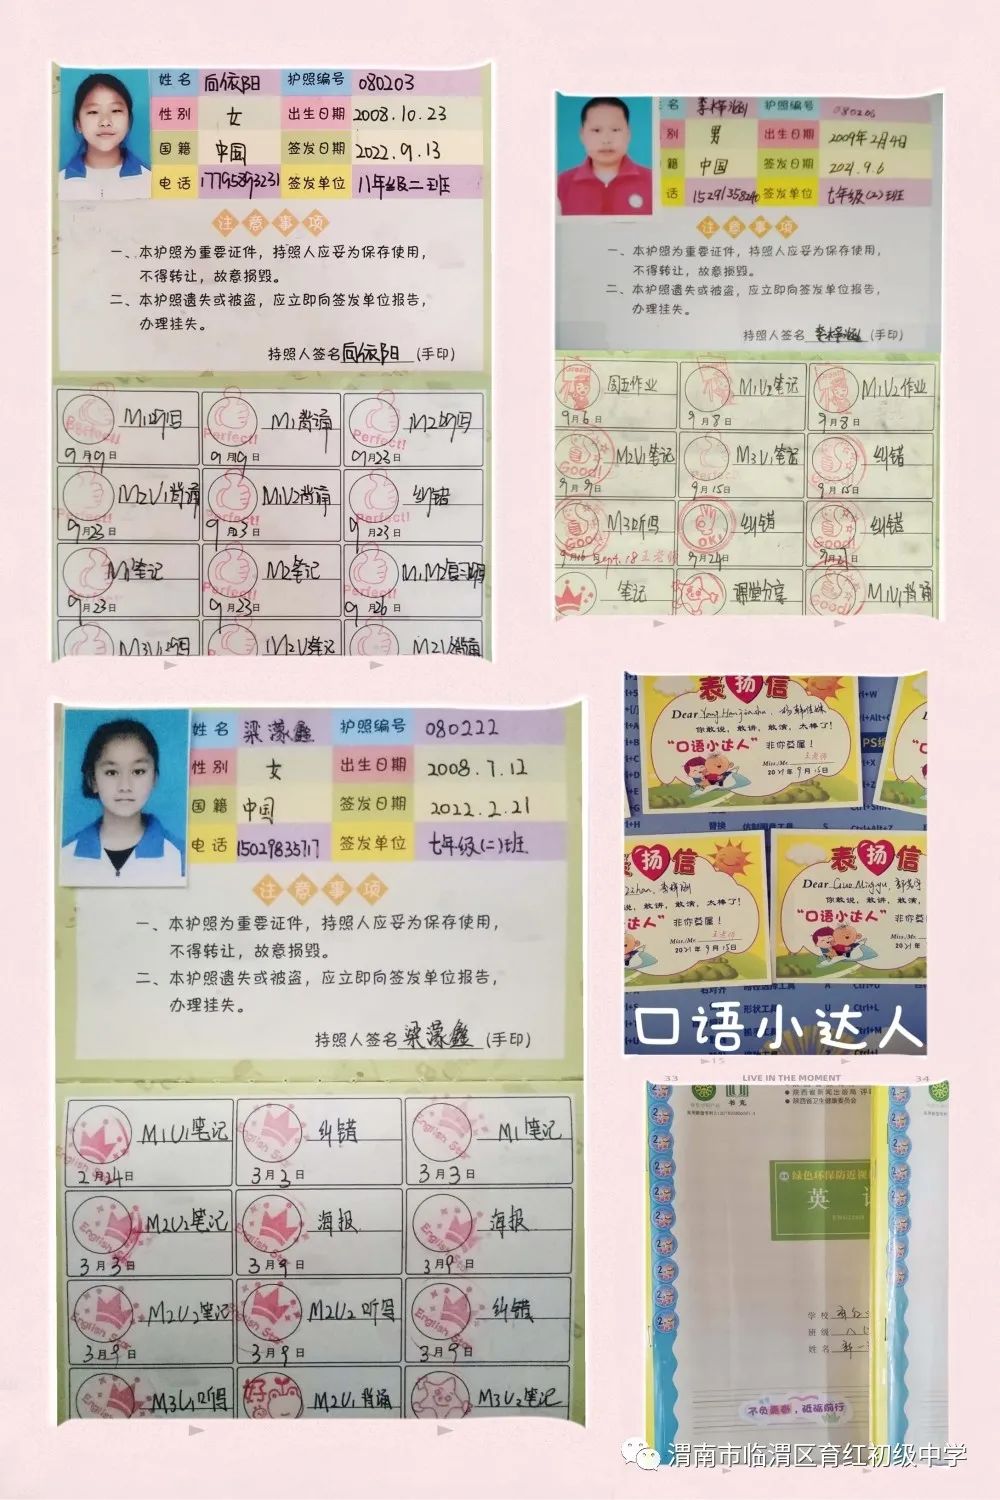 姓名 向依阳 护照编号 080203
性别 女 出生日期 2008.10.23
国籍 中国 签发日期 2022.9.13
电话 17795893231 签发单位 八年级二班
注意事项
一、本护照为重要证件，持照人应妥为保存使用，
不得转让，故意损毁。
二、本护照遗失或被盗，应立即向签发单位报告，
办理挂失。
持照人签名 向依阳 (手印)
M1听写 M1背诵 M2听写
Perfect! Perfect! Perfect!
9月9日 9月9日 9月23日
M2U1背诵 M1U2背诵 纠错
Perfect! Perfect!
9月23日 9月23日 9月23日
M1笔记 M2笔记
9月23日 9月23日 9月26日
M3U1听写 M2U1背诵
名 李梓涵 护照编号 080206
别 男 出生日期 2009年2月4日
籍 中国 签发日期 2021.9.6
话 签发单位 七年级(2)班
注意事项
一、本护照为重要证件，持照人应妥为保存使用，
不得转让，故意损毁。
二、本护照遗失或被盗，应立即向签发单位报告，
办理挂失。
持照人签名 李梓涵 (手印)
周五作业 M1U2笔记 M1U2作业
9月6日 9月8日 9月8日
M2U1笔记 M3U1笔记 纠错
Good! Good!
9月9日 9月15日 9月15日
M3听写 纠错 纠错
Good! OK! Good!
9月16日 Sept.18 王老师 9月21日 9月21日
笔记 课堂分享 M1U1背诵
Good!
姓名 梁濛鑫 护照编号 080222
性别 女 出生日期 2008.7.12
国籍 中国 签发日期 2022.2.21
电话 15029835717 签发单位 七年级(二)班
注意事项
一、本护照为重要证件，持照人应妥为保存使用，
不得转让，故意损毁。
二、本护照遗失或被盗，应立即向签发单位报告，
办理挂失。
持照人签名 梁濛鑫 (手印)
M1U1笔记 纠错 M1笔记
English Star
2月24日 3月3日 3月3日
M2U2笔记 海报 海报
English Star
3月3日 3月9日 3月9日
M2U2笔记 M2U2听写 纠错
English Star
3月9日 3月9日 3月9日
M3U1听写 好 M2U1背诵 M3U2笔记
表扬信
你敢说，敢讲，敢演，太棒了！
“口语小达人” 非你莫属！
Miss./Mr. 王老师
2021年9月15日
扬信
说，敢讲，敢演，太棒了！
达人” 非你莫属！
Miss./Mr. 王老师
2021年9月15日
表扬信
Dear Guo Mingyu,
你敢说，敢讲，敢演，
“口语小达人” 非你
Miss./Mr.
2021年
口语小达人
33 LIVE IN THE MOMENT 34
陕西省新闻出版局
陕西省卫生健康委员会
绿色环保防近视
英
ENGLISH
学校
班级
姓名
不负青春，砥砺前行
渭南市临渭区育红初级中学